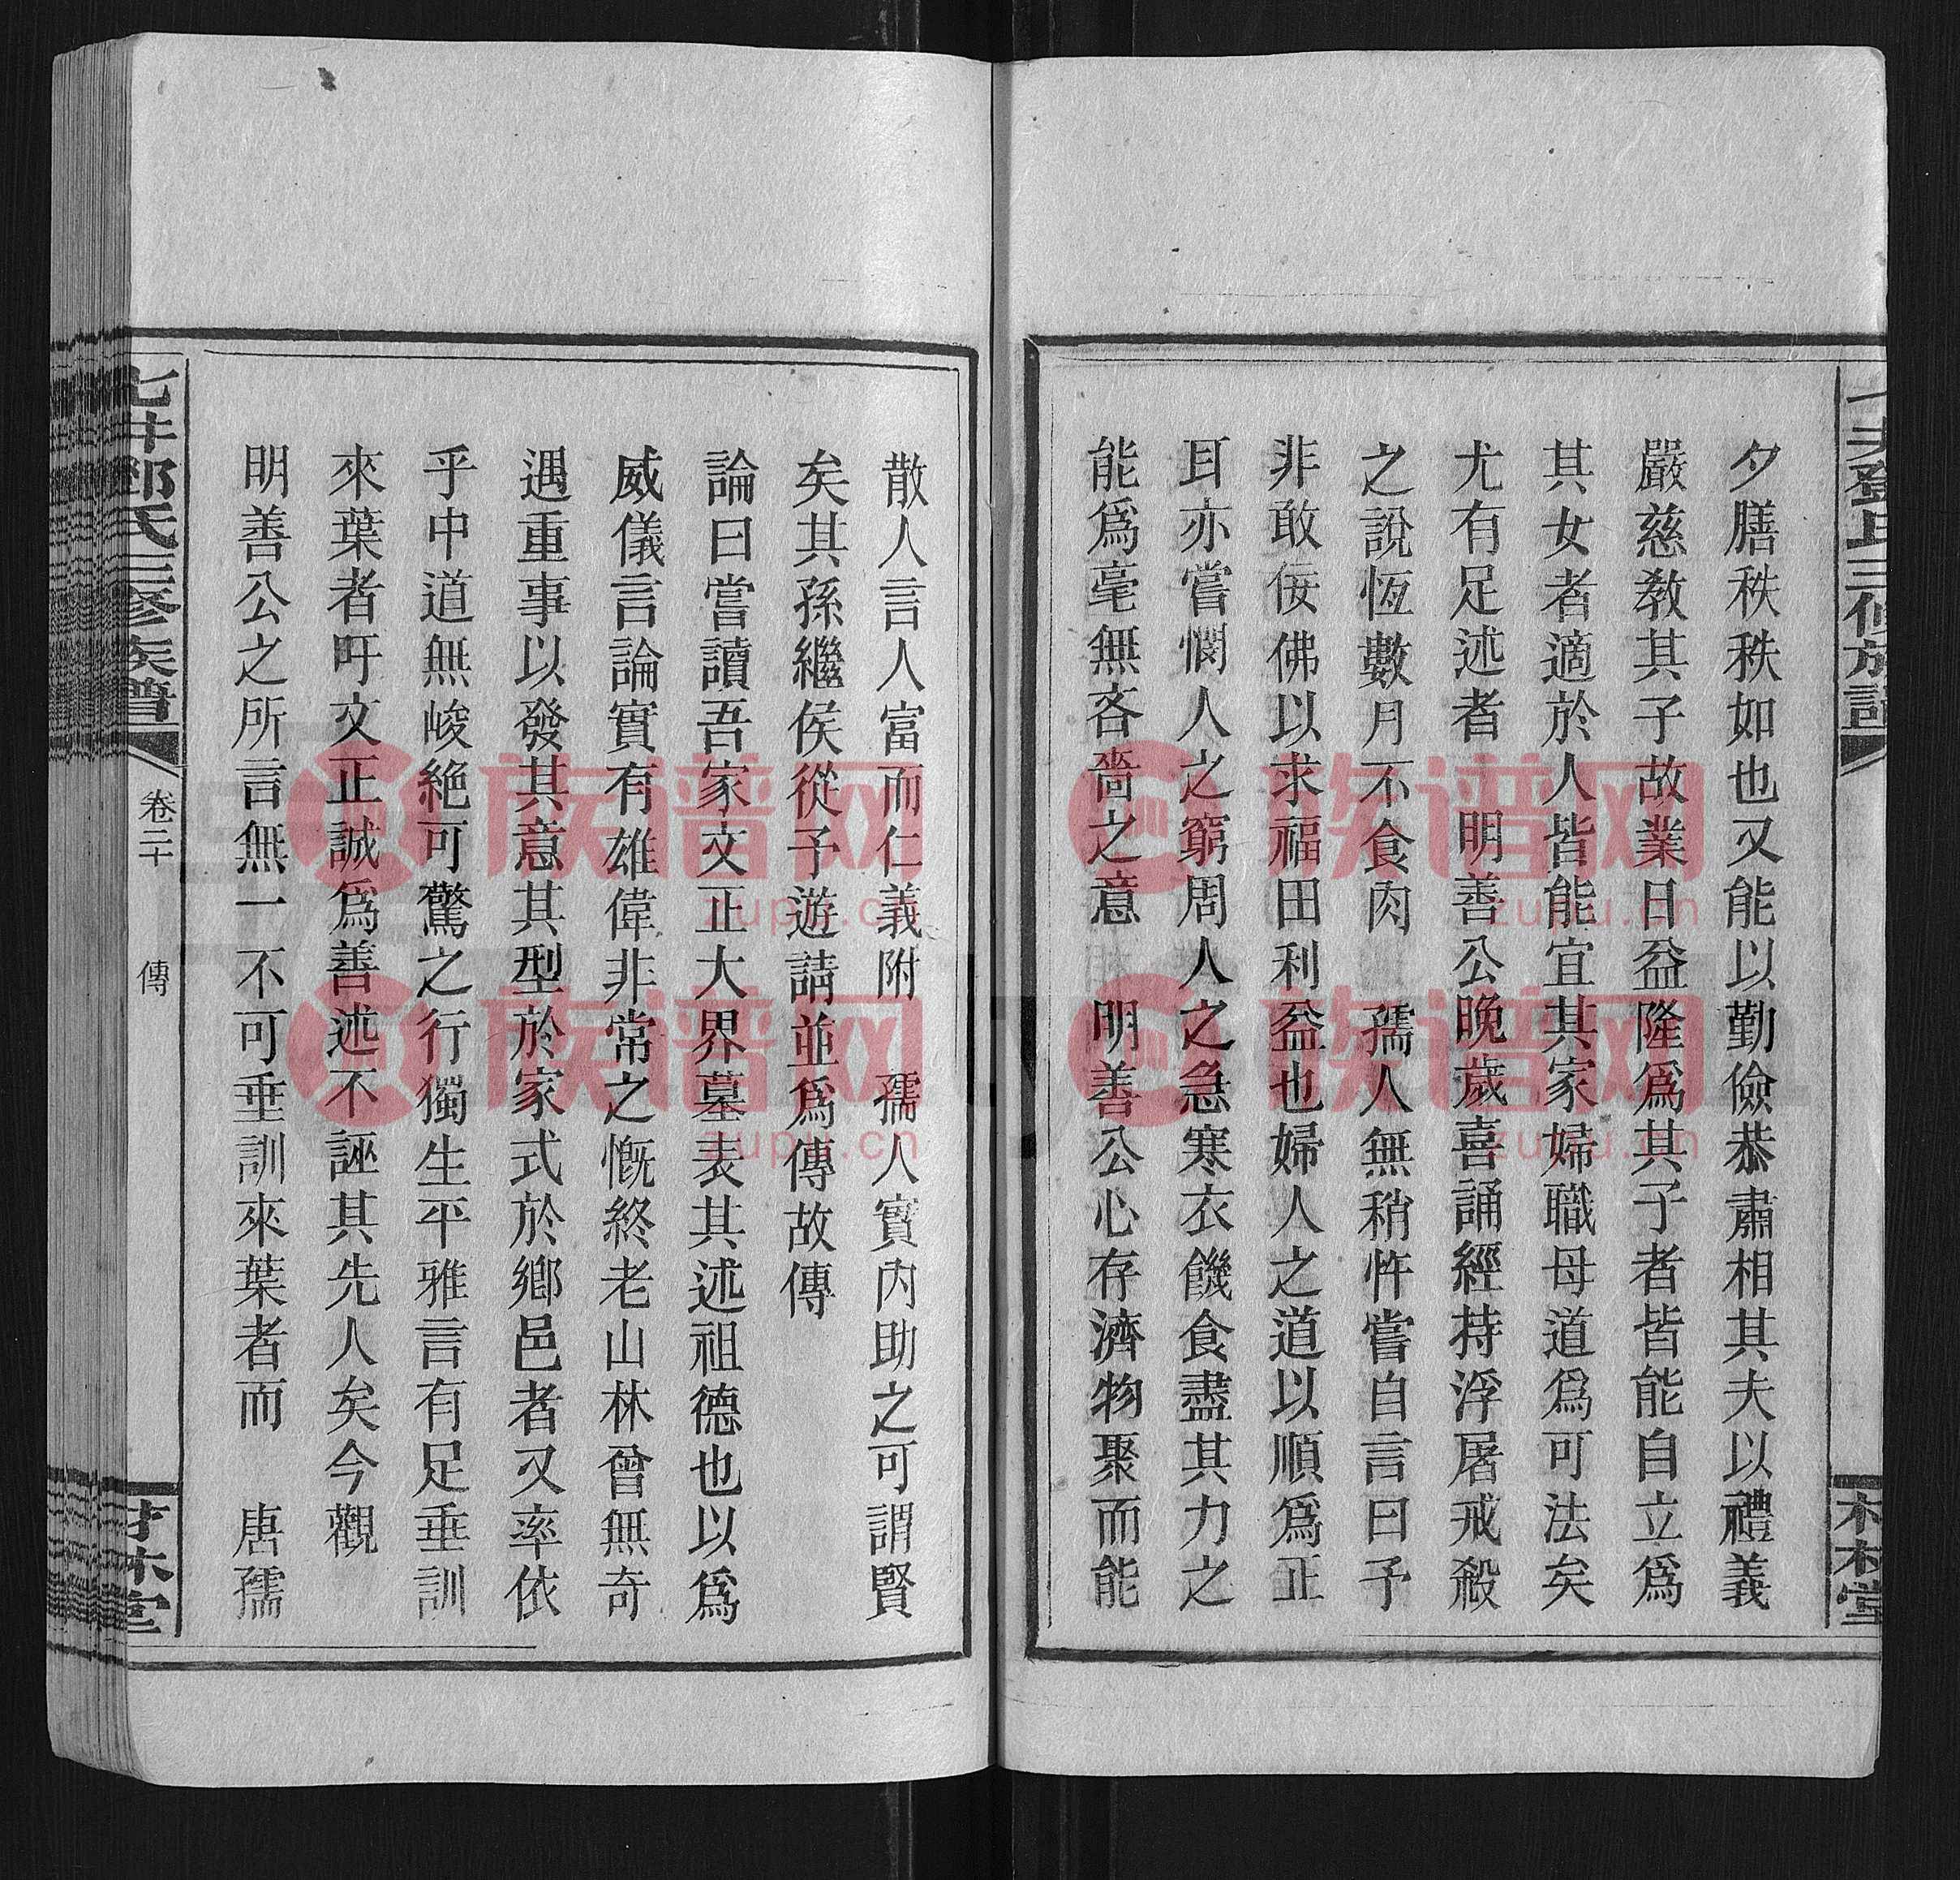 夕膳秩秩如也又能以勤儉恭肅相其夫以禮義
嚴慈教其子故業日益隆爲其子者皆能自立爲
其女者適於人皆能宜其家婦職母道爲可法矣
尤有足述者　明善公晚歲喜誦經持浮屠戒殺
之說恆數月不食肉　孺人無稍忤嘗自言曰予
非敢佞佛以求福田利益也婦人之道以順爲正
耳亦嘗憫人之窮周人之急寒衣饑食盡其力之
能爲毫無吝嗇之意　明善公心存濟物聚而能
散人言人富而仁義附　孺人實內助之可謂賢
矣其孫繼侯從予遊請並爲傳故傳
論曰嘗讀吾家文正大界墓表其述祖德也以爲
威儀言論實有雄偉非常之慨終老山林曾無奇
遇重事以發其意其型於家式於鄉邑者又率依
乎中道無峻絕可驚之行獨生平雅言有足垂訓
來葉者吁文正誠爲善述不誣其先人矣今觀
明善公之所言無一不可垂訓來葉者而　唐孺
七井鄧氏三修族譜
卷二十
傳
族谱网
zupu.cn
族谱网
zupu.cn
族谱网
zupu.cn
族谱网
zupu.cn